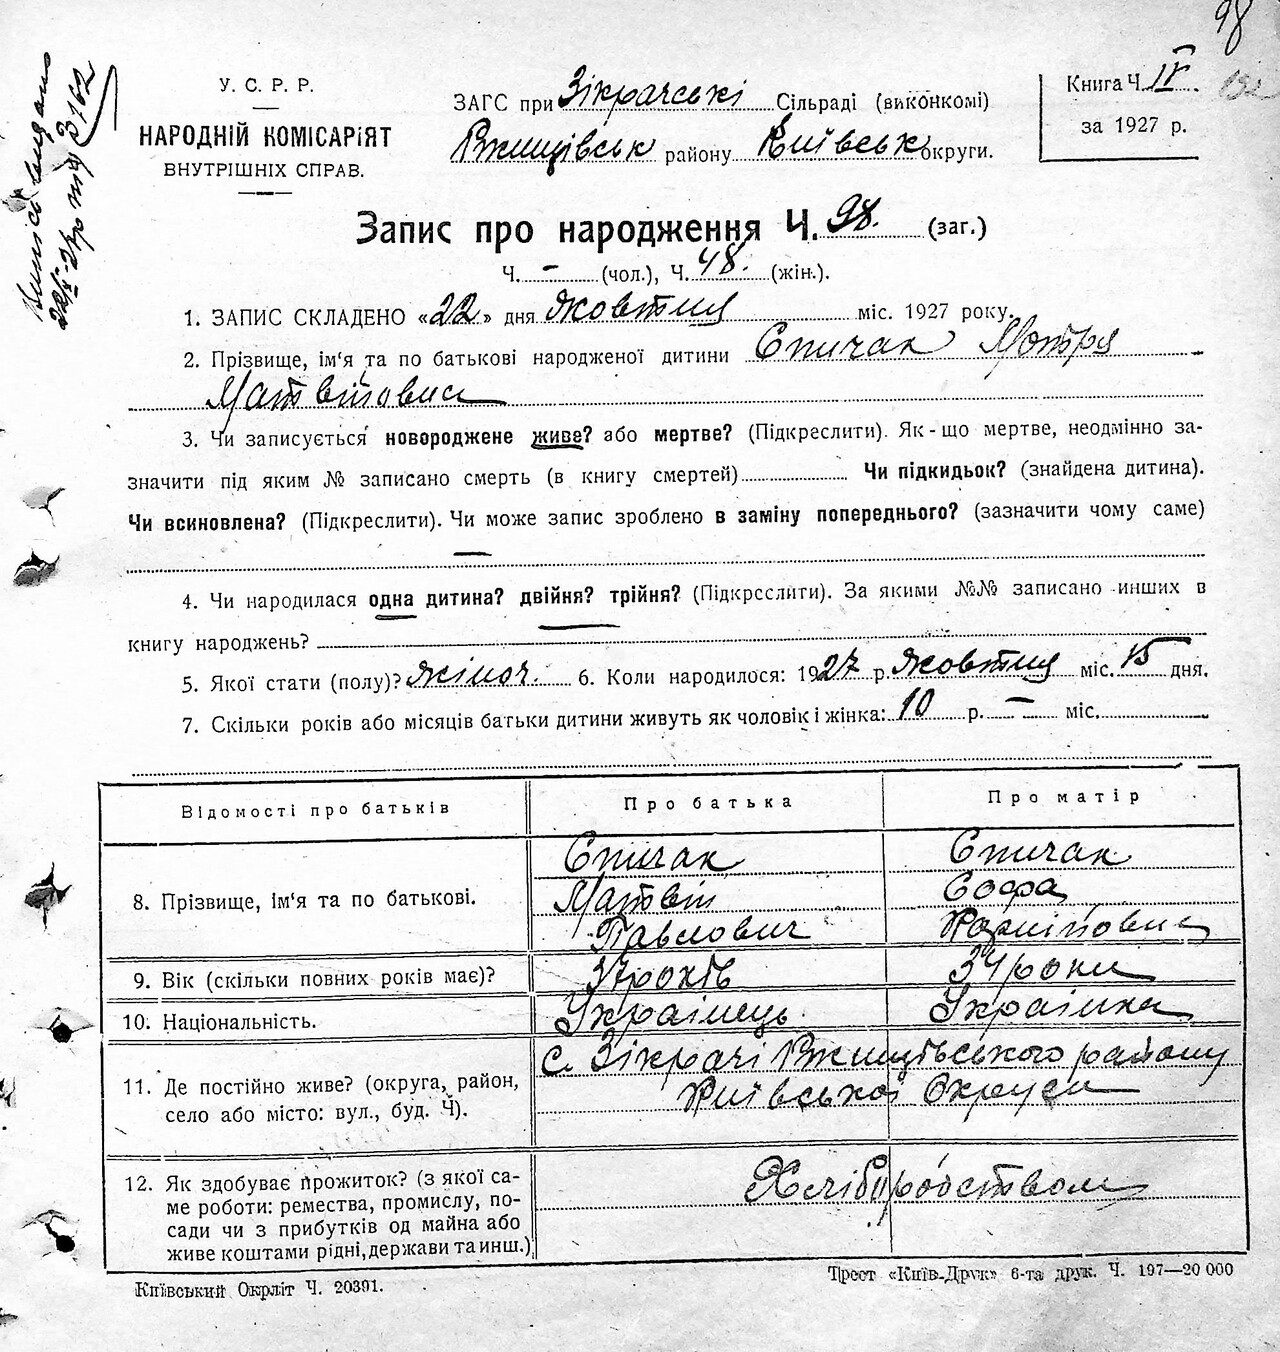 98
У. С. Р. Р.
НАРОДНІЙ КОМІСАРІЯТ
ВНУТРІШНІХ СПРАВ.
ЗАГС при Зікрачські Сільраді (виконкомі)
Ржищівськ району Київськ округи.
Книга Ч. IV.
за 1927 р.
3762
Запис про народження Ч. 98. (заг.)
Ч. – (чол.), Ч. 48. (жін.).
1. ЗАПИС СКЛАДЕНО «22» дня жовтня міс. 1927 року.
2. Прізвище, ім'я та по батькові народженої дитини Спичак Мотря
Матвіївна
3. Чи записується новороджене живе? або мертве? (Підкреслити). Як-що мертве, неодмінно за-
значити під яким № записано смерть (в книгу смертей) Чи підкидьок? (знайдена дитина).
Чи всиновлена? (Підкреслити). Чи може запис зроблено в заміну попереднього? (зазначити чому саме)
—
4. Чи народилася одна дитина? двійня? трійня? (Підкреслити). За якими №№ записано инших в
книгу народжень?
5. Якої стати (полу)? жіноч. 6. Коли народилося: 1927 р. жовтня міс. 15 дня.
7. Скільки років або місяців батьки дитини живуть як чоловік і жінка: 10 р. – міс.
Відомості про батьків Про батька Про матір
8. Прізвище, ім'я та по батькові.
Спичак Спичак
Матвій Софя
Павлович
9. Вік (скільки повних років має)? 37 років 34 роки
10. Національність. Українець Українка
11. Де постійно живе? (округа, район,
село або місто: вул., буд. Ч).
с. Зікрачі Ржищівського району
Київської Округи
12. Як здобуває прожиток? (з якої са-
ме роботи: ремества, промислу, по-
сади чи з прибутків од майна або
живе коштами рідні, держави та инш.)
Хліборобством
Київський Окрліт Ч. 20391.
Трест «Київ-Друк» 6-та друк. Ч. 197—20 000